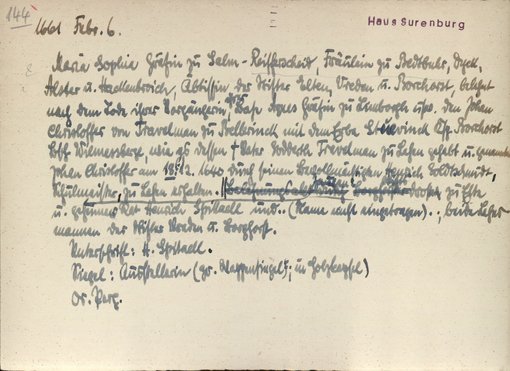 144
1661 Febr. 6.
Haus Surenburg
Maria Sophia Gräfin zu Salm-Reifferscheid, Fräulein zu Bedtbur, Dyck,
Alster u. Hackenbroich, Äbtissin der Stifter Elten, Vreden u. Borchorst, belehnt
nach dem Tode ihrer Vorgängerin, Agnes Gräfin zu Limborgh usw. den Johan
Christoffer von Travelman zu mit dem Erbe Ksp. Borchorst
wie es dessen † Vater Travelman zu Lehen gehabt u. genannter
Johan Christoffer am 1640 durch seinen Bevollmächtigten Henrich Goldtschmidt,
Schulmeister, zu Lehen erhalten.
u. Henrich Spittaell und . (Name nicht eingetragen) . , beide Lehn-
mannen der Stifter Vreden u. Borghorst.
Unterschrift: H. Spittaell.
Siegel: Ausstellerin (gr. Wappensiegel; in Holzkapsel)
Or. Perg.